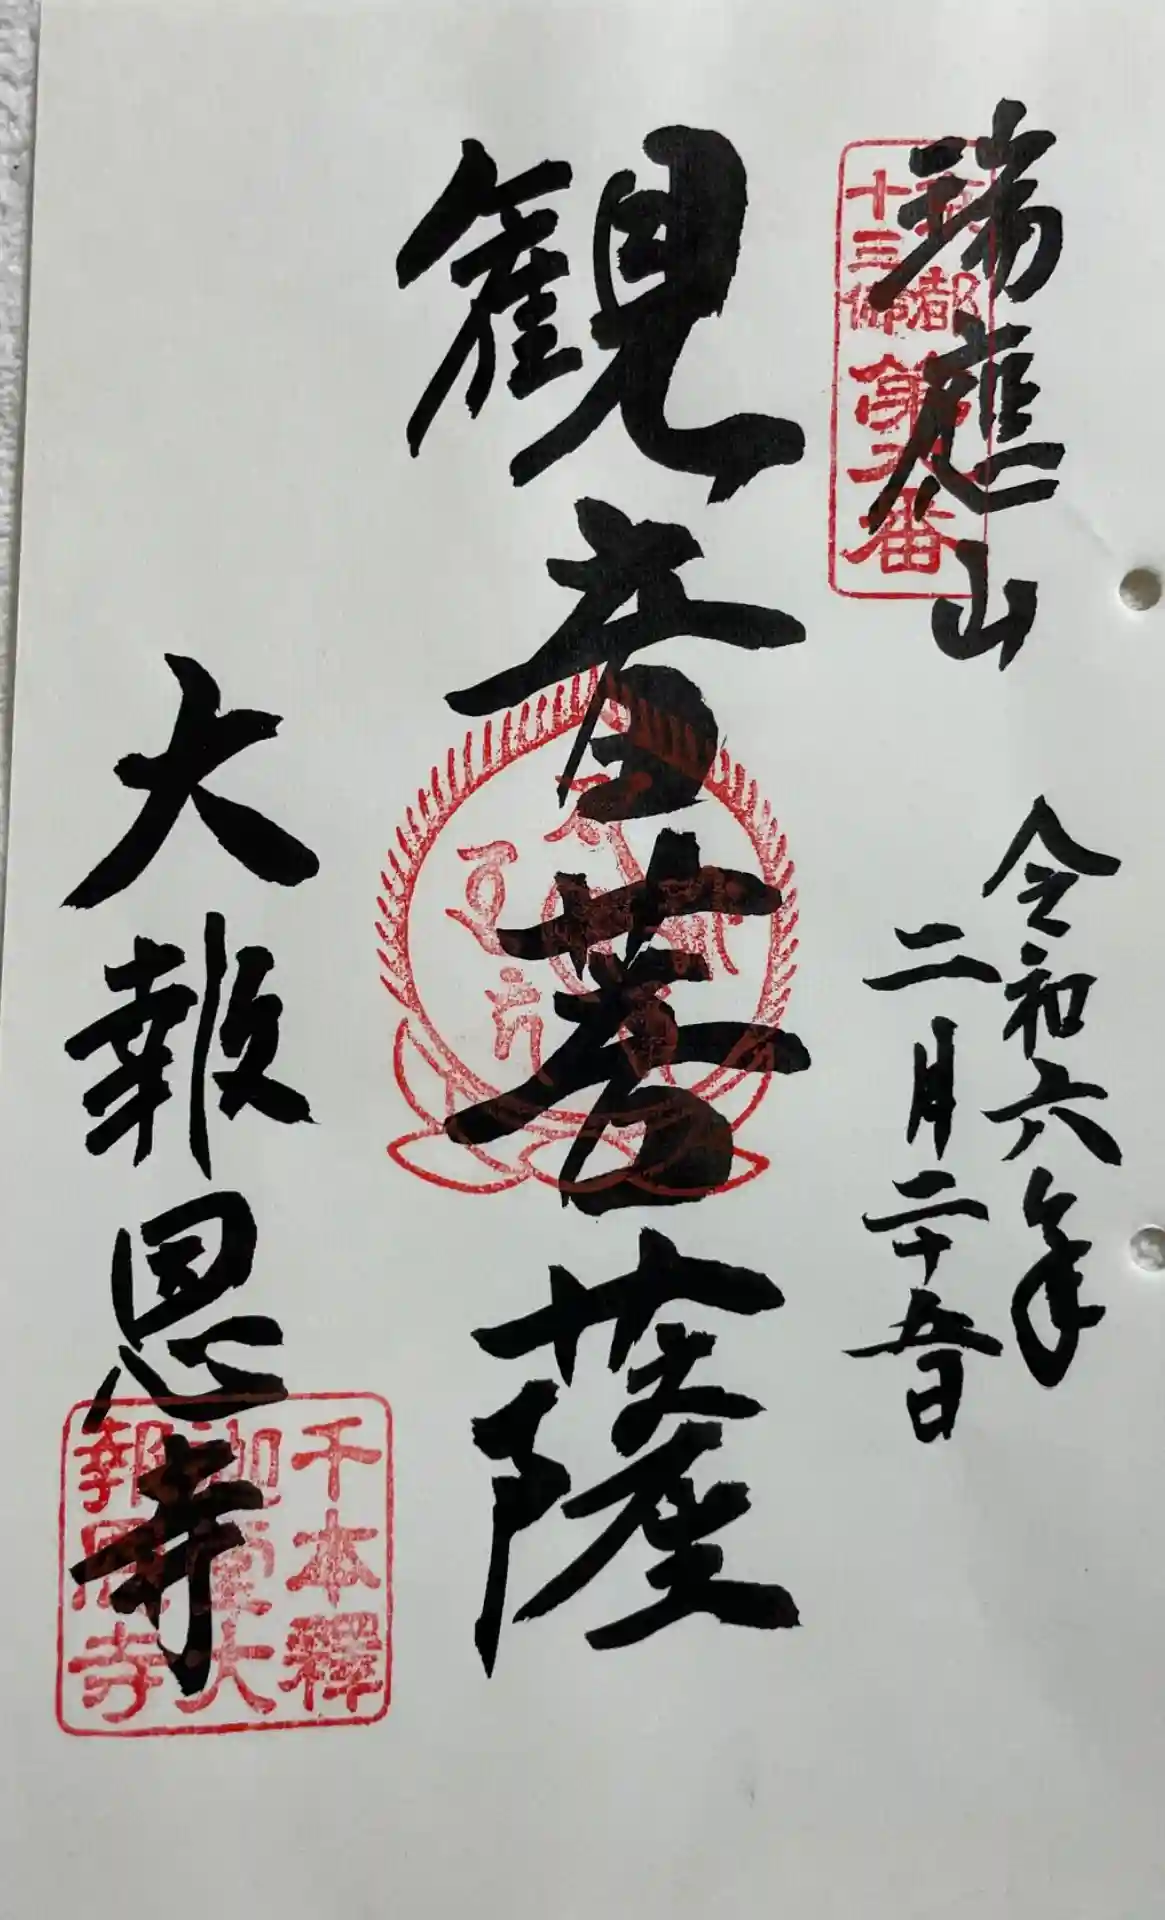 瑞應山
京都
十三佛
第八番
令和六年
二月二十五日
観音菩薩
大報恩寺
千本釋
迦堂大
報恩寺